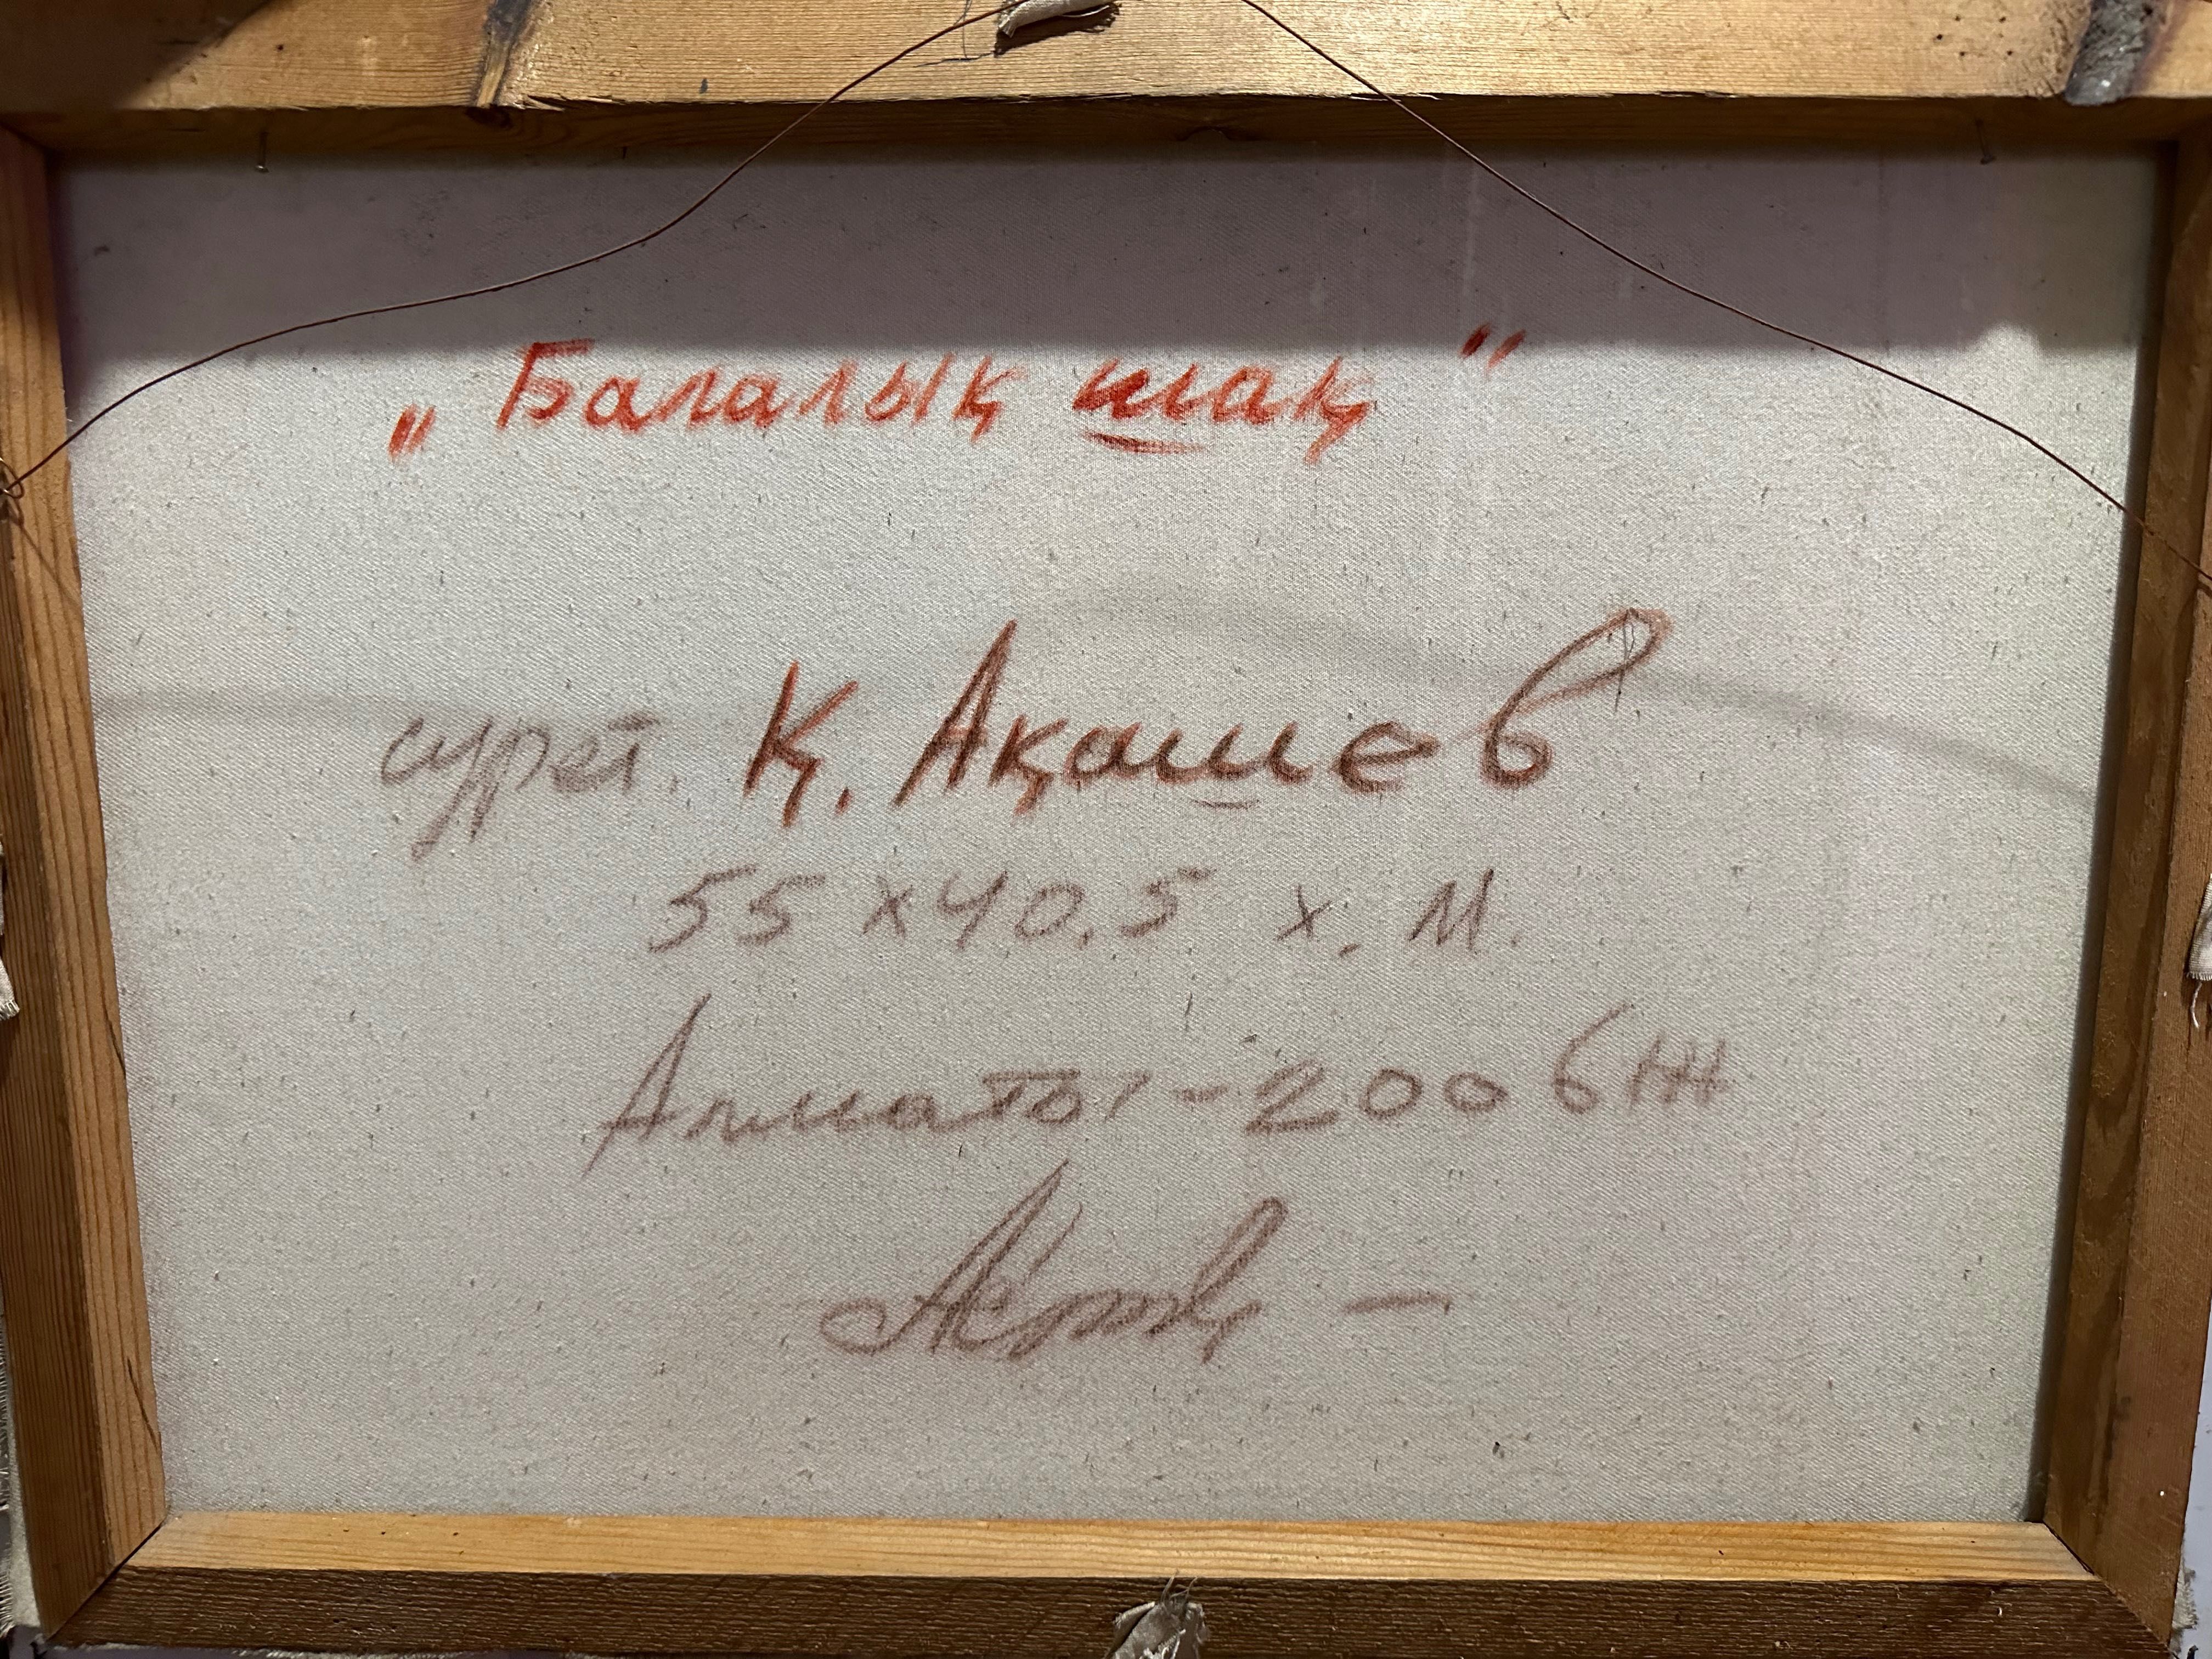 „Балалық шақ"
сурет. Қ. Ақашев
55 х 40.5 х. м.
Алматы - 2006 ж